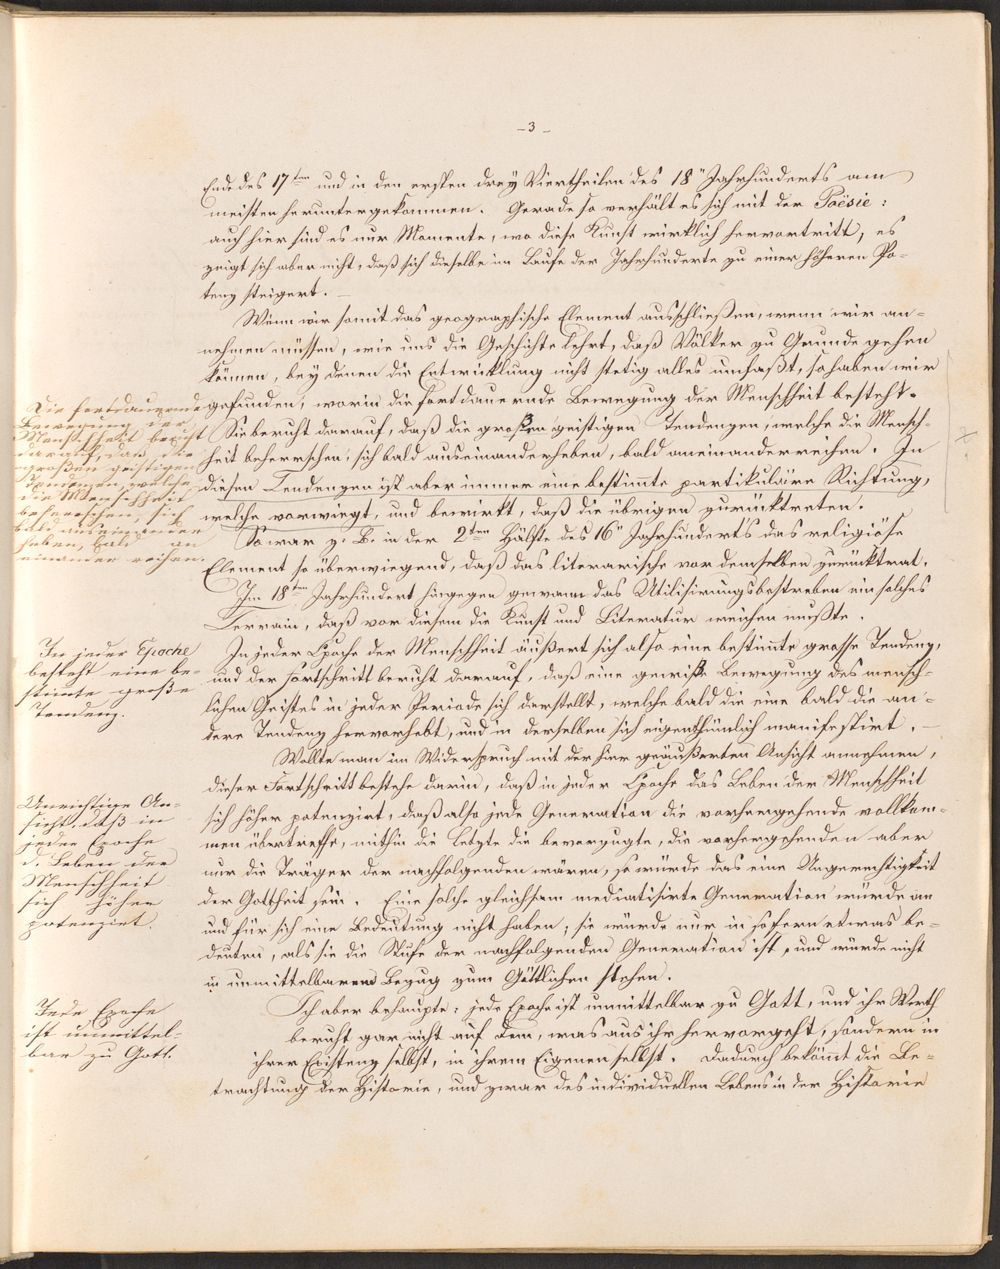 – 3 –
Ende des 17ten und in den ersten drey Viertheilen des 18" Jahrhunderts am
meisten heruntergekommen. Gerade so verhält es sich mit der Poësie:
auch hier sind es nur Momente, wo diese Kunst wirklich hervortritt, es
zeigt sich aber nicht, daß sich dieselbe im Laufe der Jahrhunderte zu einer höheren Po-
tenz steigert. –
Wenn wir somit das geographische Element ausschließen, wenn wir an-
nehmen müssen, wie uns die Geschichte lehrt, daß Völker zu Grunde gehen
können, bey denen die Entwicklung nicht stetig alles umfaßt, so haben wir
gefunden, worin die fortdauernde Bewegung der Menschheit besteht.
Sie beruht darauf, daß die großen geistigen Tendenzen, welche die Mensch-
heit beherrschen, sich bald auseinanderheben, bald aneinanderreihen. In
diesen Tendenzen ist aber immer eine bestimmte partikuläre Richtung,
welche vorwiegt, und bewirkt, daß die übrigen zurücktreten.
So war z. B. in der 2ten Hälfte des 16" Jahrhunderts das religiöse
Element so überwiegend, daß das literarische vor demselben zurücktrat.
Im 18ten Jahrhundert hingegen gewann das Utilisirungsbestreben ein solches
Terrain, daß vor diesem die Kunst und Literatur weichen mußte.
In jeder Epoche der Menschheit äußert sich also eine bestimmte grosse Tendenz,
und der Fortschritt beruht darauf, daß eine gewiße Bewegung des mensch-
lichen Geistes in jeder Periode sich darstellt, welche bald die eine bald die an-
dere Tendenz hervorhebt, und in derselben sich eigenthümlich manifestirt. –
Wollte man im Widerspruch mit der hier geäußerten Ansicht annehmen,
dieser Fortschritt bestehe darin, daß in jeder Epoche das Leben der Menschheit
sich höher potenzirt, daß also jede Generation die vorhergehende vollkom-
men übertreffe, mithin die letzte die bevorzugte, die vorhergehenden aber
nur die Träger der nachfolgenden wären, so würde das eine Ungerechtigkeit
der Gottheit sein. Eine solche gleichsam mediatisirte Generation würde an
und für sich eine Bedeutung nicht haben; sie würde nur in sofern etwas be-
deuten, als sie die Stufe der nachfolgenden Generation ist, und würde nicht
in unmittelbarem Bezug zum Göttlichen stehen.
Ich aber behaupte: jede Epoche ist unmittelbar zu Gott, und ihr Werth
beruht gar nicht auf dem, was aus ihr hervorgeht, sondern in
ihrer Existenz selbst, in ihrem Eigenen selbst. Dadurch bekömmt die Be-
trachtung der Historie, und zwar des individuellen Lebens in der Historie
Die fortdauernde
Bewegung der
Menschheit beruht
darauf, daß die
großen geistigen
Tendenzen, welche
die Menschheit
beherrschen, sich
bald auseinander
heben, bald an
einander reihen.
In jeder Epoche
besteht eine be-
stimmte große
Tendenz.
Unrichtige An-
sicht, daß in
jeder Epoche
d. Leben der
Menschheit
sich höher
potenzirt.
Jede Epoche
ist unmittel-
bar zu Gott.